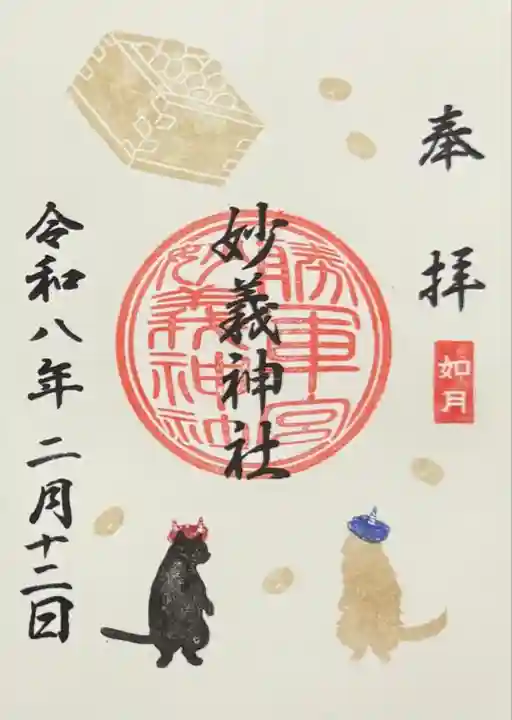 奉拝
如月
勝軍宮
妙義神社
妙義神社
令和八年二月十二日